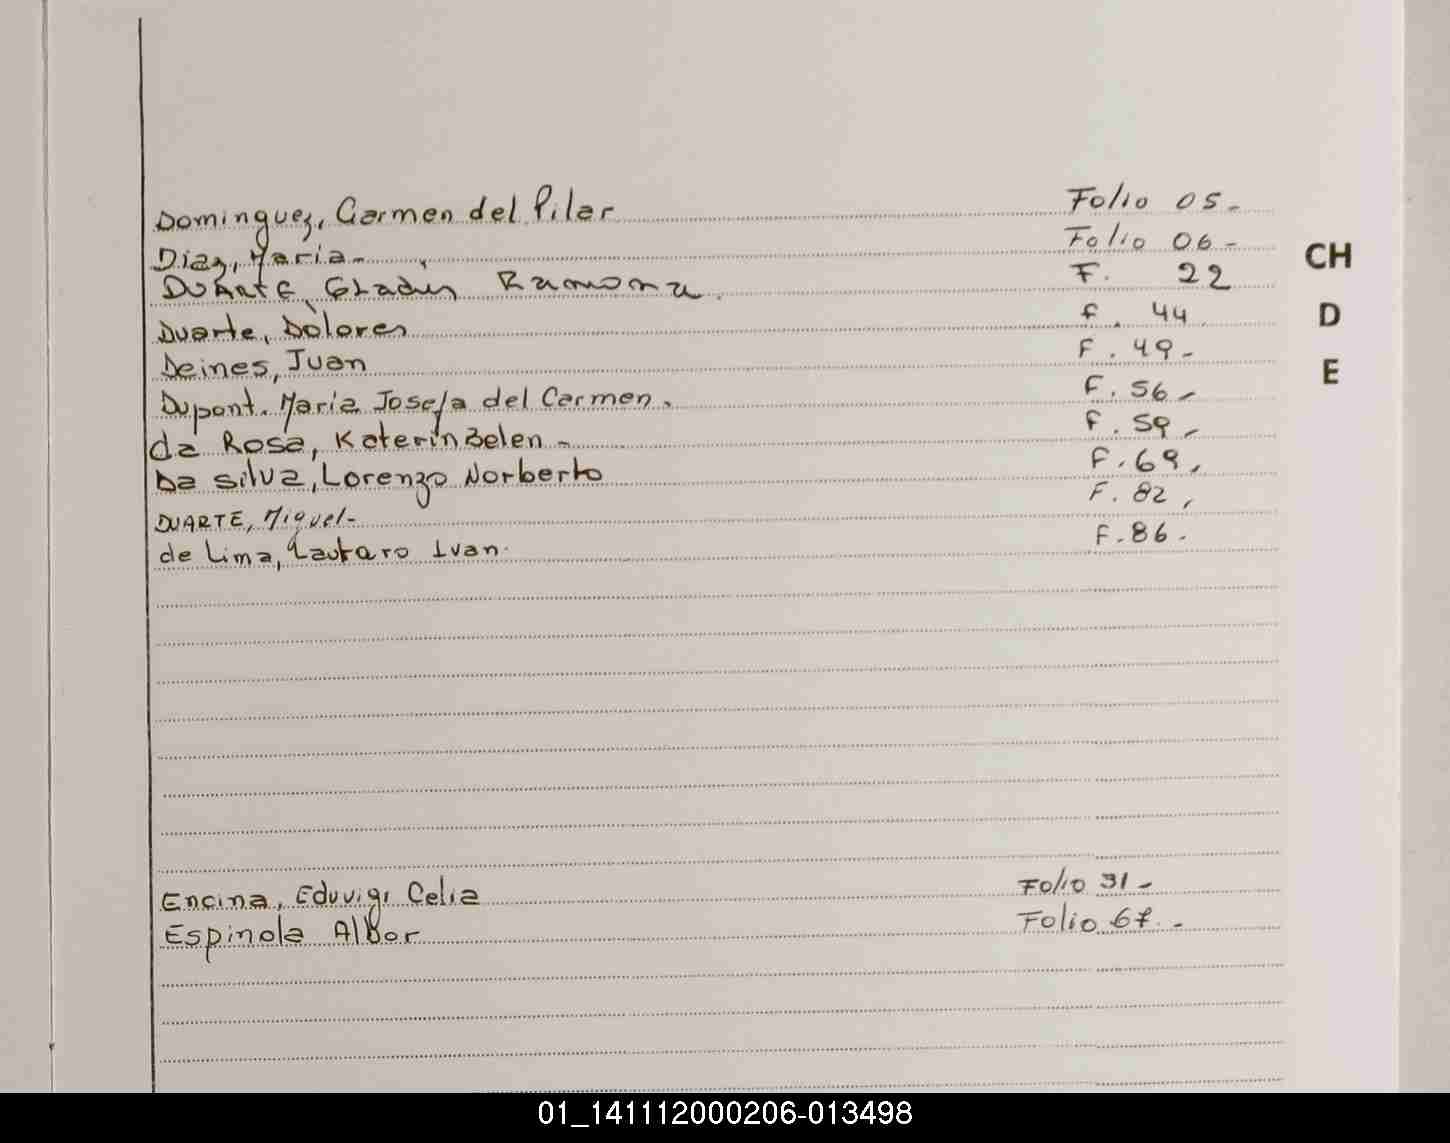 Dominguez, Carmen del Pilar Folio 05-
Diaz, Maria- Folio 06-
Duarte, Gladys Ramona. F. 22
Duarte, Dolores F. 44
Deines, Juan F. 49-
Dupont. Maria Josefa del Carmen. F. 56-
da Rosa, Katerin Belen- F. 59-
Da Silva, Lorenzo Norberto F. 69,
DUARTE, Miguel- F. 82,
de Lima, Lautaro Ivan. F. 86.
CH
D
E
Encina, Eduvigi Celia Folio 31-
Espinola Albor Folio 67.-
01_141112000206-013498